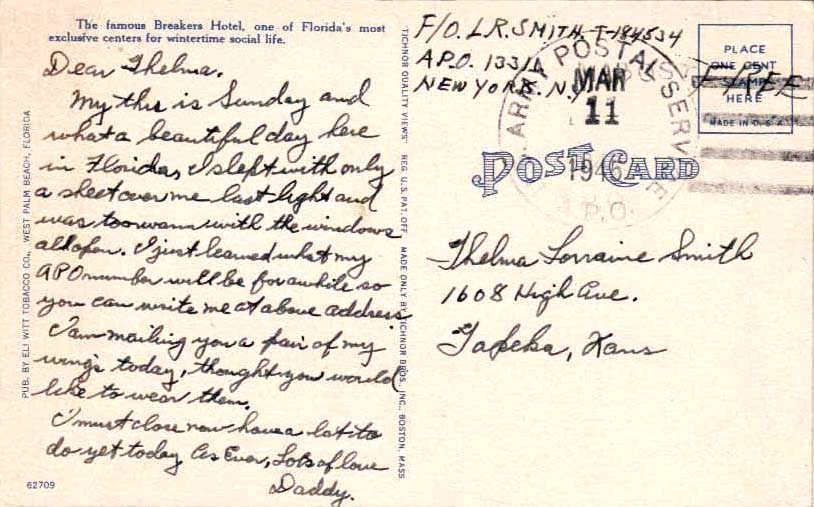 The famous Breakers Hotel, one of Florida's most
exclusive centers for wintertime social life.
Dear Thelma.
My this is Sunday and
what a beautiful day here
in Florida, I slept with only
a sheet over me last night and
was too warm with the windows
all open. I just learned what my
APO number will be for awhile so
you can write me at above address.
I am mailing you a pair of my
wings today, thought you would
like to wear them.
I must close now have a lot to
do yet today As Ever, Lots of love
Daddy.
62709
PUB. BY ELI WITT TOBACCO CO., WEST PALM BEACH, FLORIDA
"TICHNOR QUALITY VIEWS" REG. U. S. PAT. OFF. MADE ONLY BY TICHNOR BROS., INC., BOSTON, MASS.
F/O. L.R. SMITH. T-184534
A.P.O. 
NEW YORK. N.Y.
ARMY POSTAL SERVICE
MAR
11
1945
A.P.O.
PLACE
ONE CENT
STAMP
HERE
MADE IN U.S.A.
FREE
POST CARD
Thelma Lorraine Smith
1608 High Ave.
Topeka, Kans